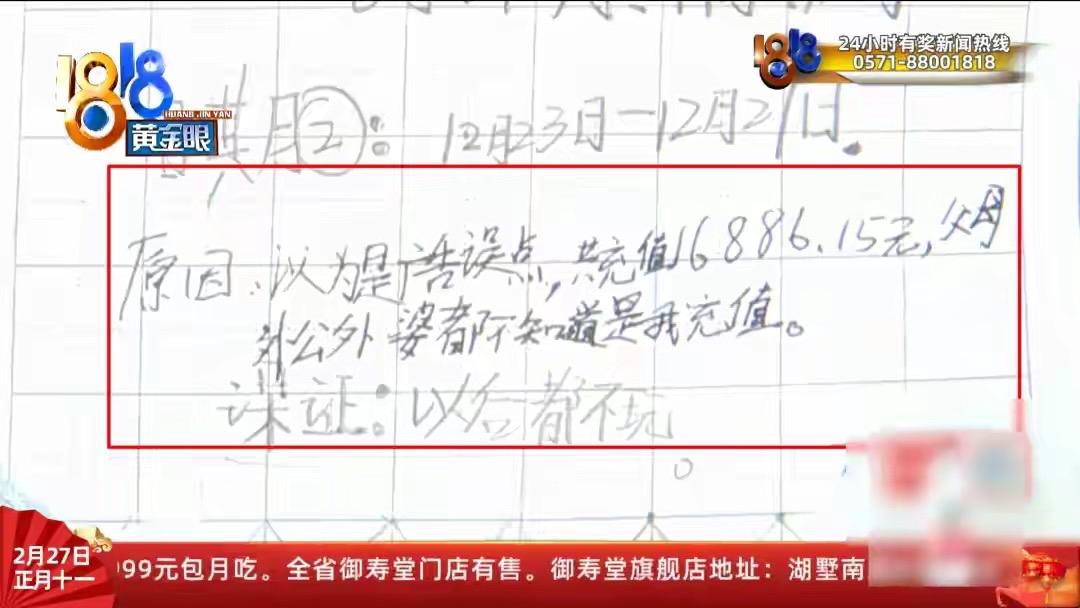 1818
HUANG JIN YAN
黄金眼
1818
24小时有奖新闻热线
0571-88001818
其月②：12月23日一12月27日。
原因：以为是广告误点，共充值16886.15元，父母
外公外婆都不知道是我充值。
保证：以后都不玩
。
2月27日
正月十一
999元包月吃。全省御寿堂门店有售。御寿堂旗舰店地址：湖墅南